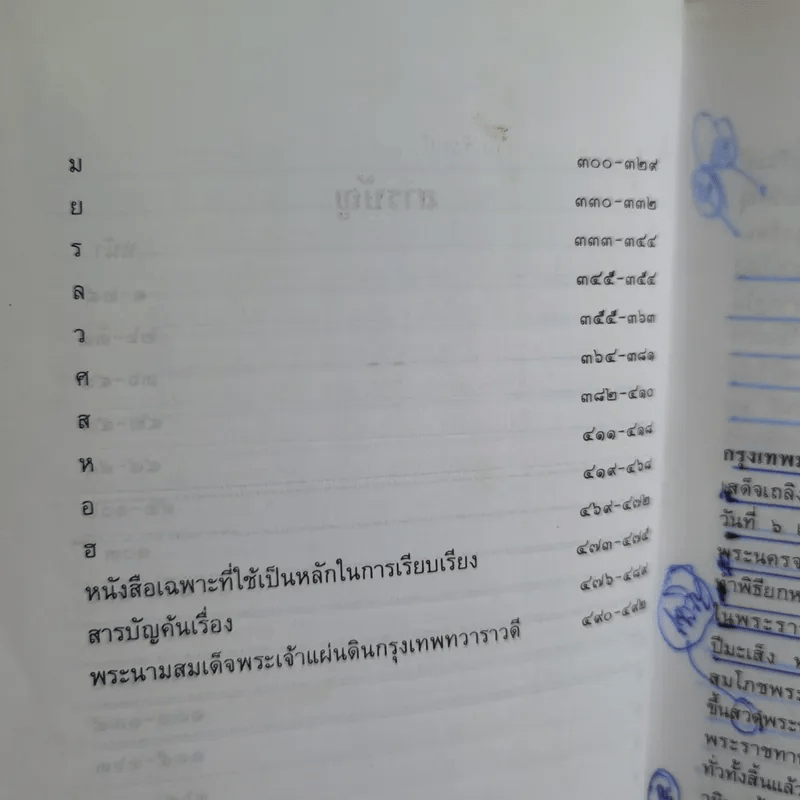 ม ๓๐๐-๓๒๙
ย ๓๓๐-๓๓๒
ร ๓๓๓-๓๔๔
ล ๓๔๕-๓๕๔
ว ๓๕๕-๓๖๓
ศ ๓๖๔-๓๘๑
ส ๓๘๒-๔๑๐
ห ๔๑๑-๔๑๘
อ ๔๑๙-๔๖๘
ฮ ๔๖๙-๔๗๒
หนังสือเฉพาะที่ใช้เป็นหลักในการเรียบเรียง ๔๗๓-๔๗๕
สารบัญค้นเรื่อง ๔๗๖-๔๘๙
พระนามสมเด็จพระเจ้าแผ่นดินกรุงเทพทวาราวดี ๔๙๐-๔๙๒
กรุงเทพ
เสด็จเถลิง
วันที่ ๖
พระนคร
ทำพิธียก
ในพระรา
ปีมะเส็ง
สมโภชพระ
พระราชทา
ทั่วทั้งสิ้นแล้ว